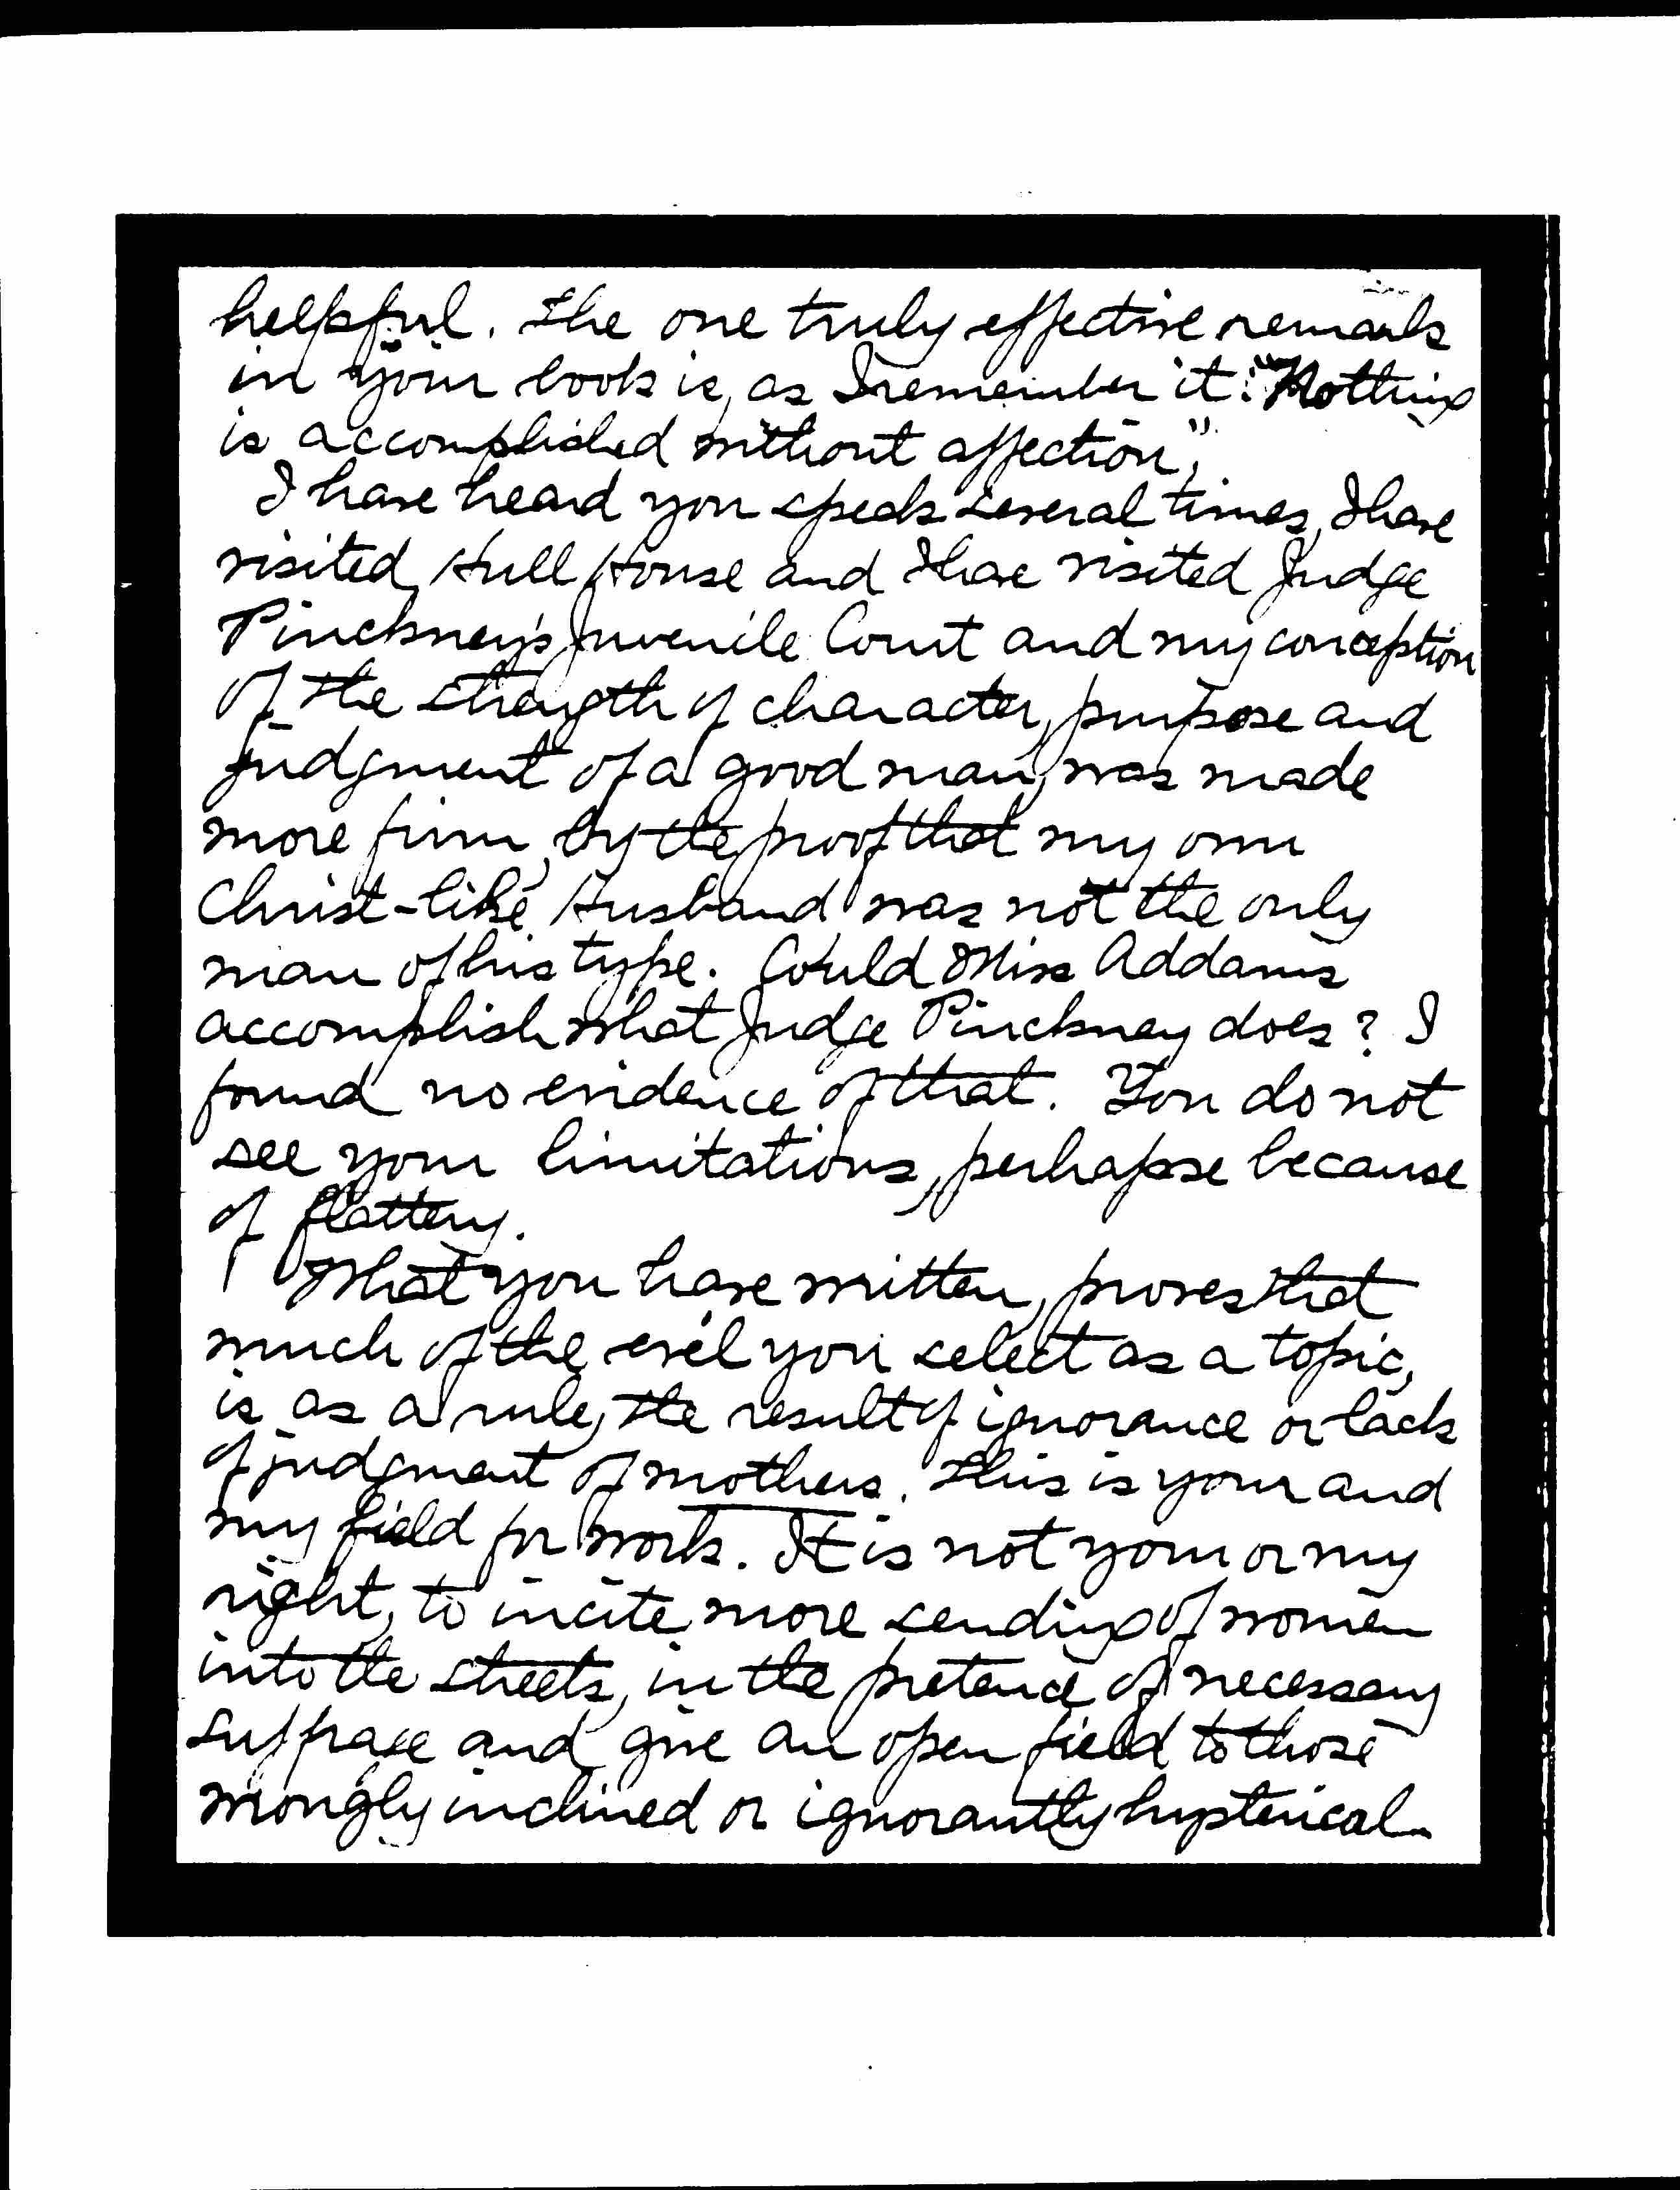 helpful. The one truly effective remark
in your book is, as I remember it: "Nothing
is accomplished without affection".
I have heard you speak several times, I have
visited Hull House and I have visited Judge
Pinckney's Juvenile Court and my conception
of the strength of character, purpose and
judgment of a good man, was made
more firm, by the proof that my own
Christ-like Husband was not the only
man of his type. Could Miss Addams
accomplish what Judge Pinckney does? I
found no evidence of that. You do not
see your limitations, perhapse because
of flattery.
What you have written, proves that
much of the evil you select as a topic,
is as a rule, the result of ignorance or lack
of judgment of mothers. This is your and
my field for work. It is not your or my
right, to incite more sending of women
into the streets, in the pretence of necessary
suffrage and give an open field to those
wrongly inclined or ignorantly hysterical.